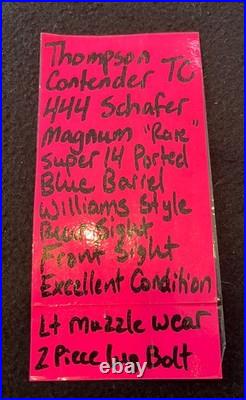 Thompson
Contender TC
444 Schafer
Magnum "Rare"
Super 14 Ported
Blue Barrel
Williams Style
Rear Sight
Front Sight
Excellent Condition
Lt Muzzle Wear
2 Piece Lug Bolt
ebay.com